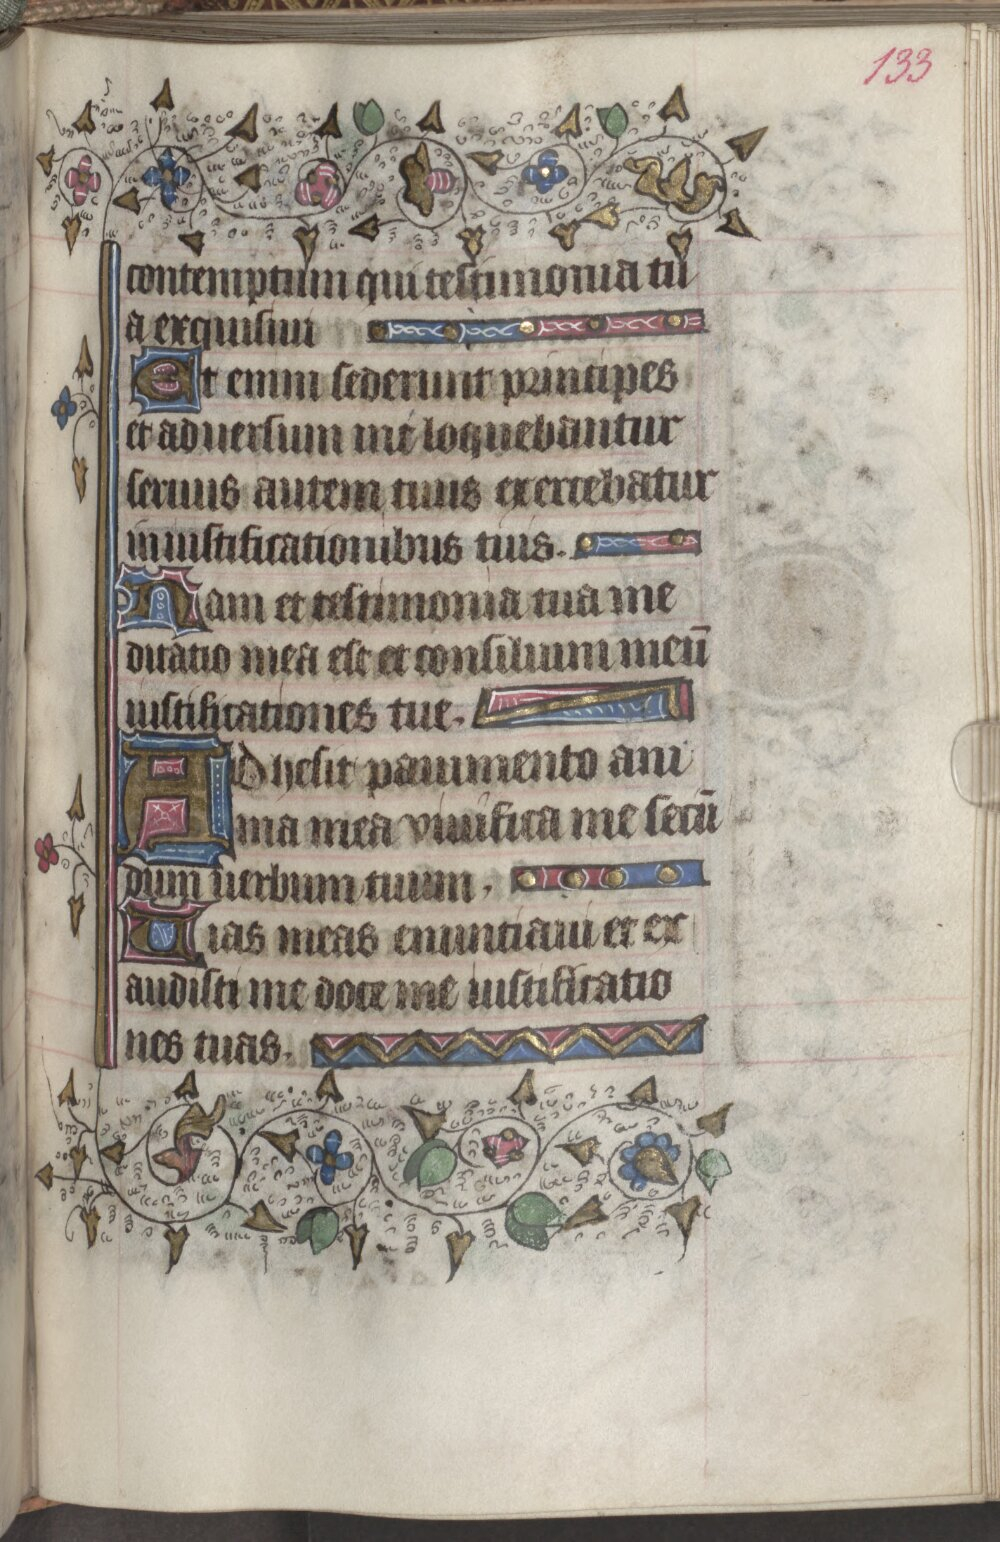 133
contemptum qui testimonia tu
a exquisiui
Et enim sederunt principes
et aduersum me loquebantur
seruus autem tuus exercebatur
in iustificationibus tuis.
Nam et testimonia tua me
ditatio mea est et consilium meū
iustificationes tue.
Adhesit pauimento ani
ma mea viuifica me secū
dum uerbum tuum.
Uias meas enuntiaui et ex
audisti me doce me iustificatio
nes tuas.